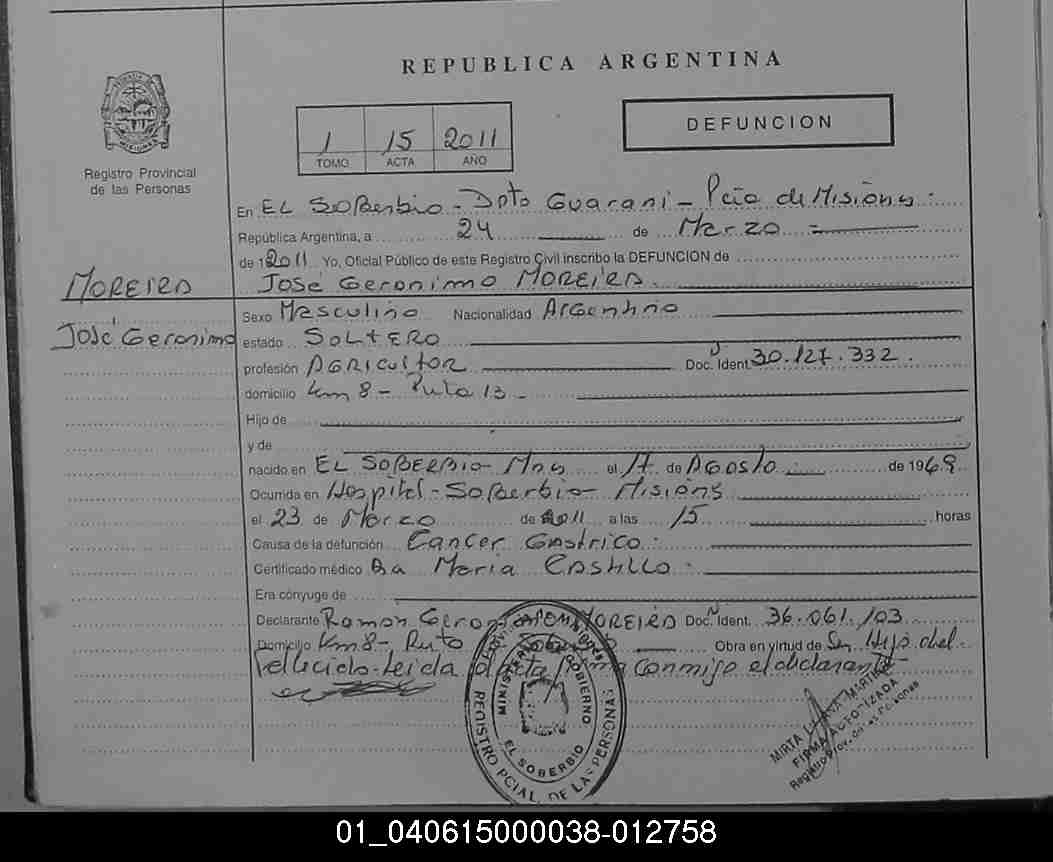 REPUBLICA ARGENTINA
DEFUNCION
1 15 2011
TOMO ACTA AÑO
Registro Provincial
de las Personas
En EL SOBERBIO - Dpto Guarani - Pcia de Misiones
República Argentina, a 24 de Marzo
de 2011 Yo, Oficial Público de este Registro Civil inscribo la DEFUNCION de
José Geronimo MOREIRA
MOREIRA
José Geronimo
Sexo Masculino Nacionalidad Argentino
estado SOLTERO
profesión AGRICULTOR Doc. Ident. 30.127.332.
domicilio Km 8 - Ruta 13
Hijo de
y de
nacido en EL SOBERBIO - Mns el 17 de Agosto de 1969
Ocurrida en Hospital - Soberbio - Misiones
el 23 de Marzo de 2011 a las 15 horas
Causa de la defunción Cancer Gastrico
Certificado médico Dra Maria Castillo
Era cónyuge de
Declarante Ramon MOREIRA Doc. Ident. 36.061.103
Domicilio Km 8 - Ruta Obra en virtud de Ser Hijo del
Fallecido - Leida el Acta Firma conmigo el declarante
MINISTERIO DE GOBIERNO
EL SOBERBIO
REGISTRO PCIAL. DE LAS PERSONAS
MIRTA
FIRMA AUTORIZADA
Registro Prov. de las Personas
01_040615000038-012758